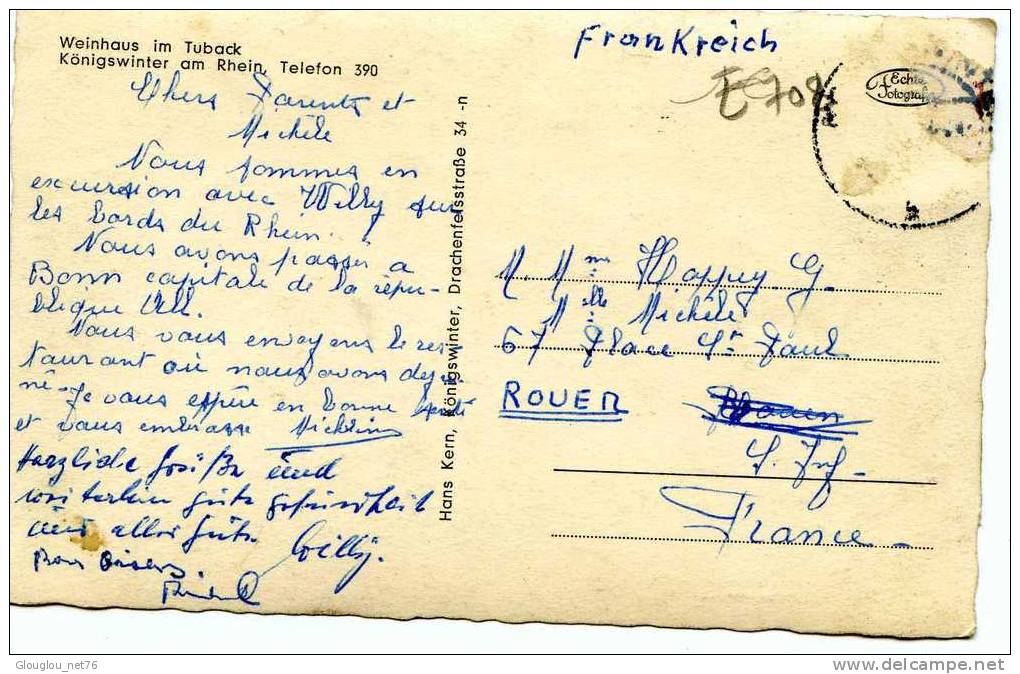 Weinhaus im Tuback
Königswinter am Rhein, Telefon 390
Chers Parents et
Michèle
Nous sommes en
excursion avec Willy sur
les bords du Rhein.
Nous avons passés à
Bonn capitale de la répu-
blique All.
Nous vous envoyons le res-
taurant où nous avons déjeu-
né. Je vous espère en bonne santé
et vous embrasse
Herzliche Grüße und
weiterhin gute Gesundheit
und alles Gute Willy.
Bons Baisers.
Hans Kern, Königswinter, Drachenfelsstraße 34 -n
Frankreich
Echte
Fotografie
M. Mme Happey G.
Melle Michèle
67 Place St Paul
ROUEN
S. Inf.
France
Glouglou_net76
delcampe.net